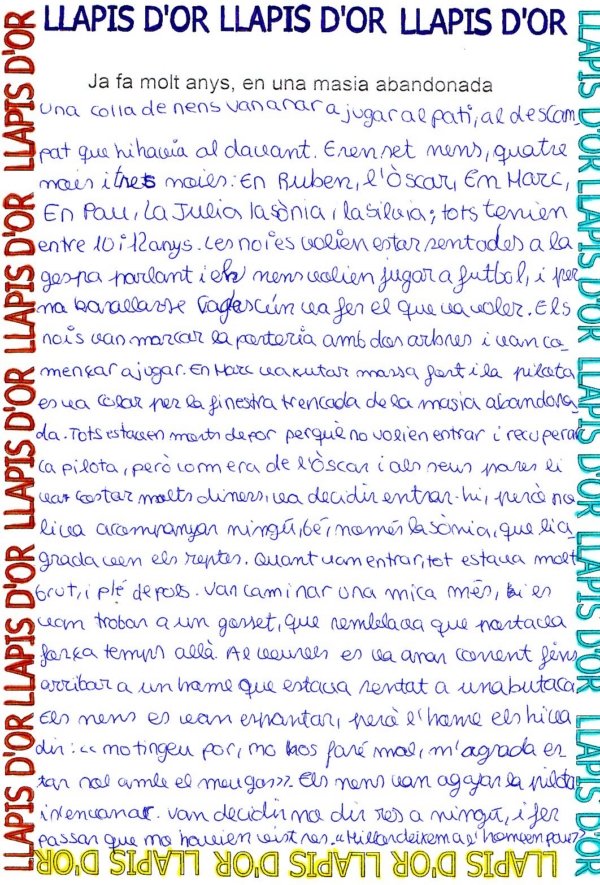 LLAPIS D'OR LLAPIS D'OR LLAPIS D'OR
Ja fa molt anys, en una masia abandonada
una colla de nens van anar a jugar al pati, al descam-
pat que hi havia al davant. Eren set nens, quatre
nois i tres noies: En Ruben, l'Òscar, En Marc,
En Pau, La Julia la sònia, la Silvia; tots tenien
entre 10 i 12 anys. Les noies volien estar sentades a la
gespa parlant i els nens volien jugar a futbol, i per
no barallarse cadascún va fer el que va voler. Els
nois van marcar la porteria amb dos arbres i van co-
mençar a jugar. En Marc va xutar massa fort i la pilota
es va colar per la finestra trencada de la masia abandona-
da. Tots estaven morts de por perquè no volien entrar i recuperar
la pilota, però com era de l'Òscar i als seus pares li
var costar molts diners, va decidir entrar-hi, però no
li va acompanyar ningú, bé, només la sònia, que li a-
gradaven els reptes. Quant vam entrar, tot estava molt
brut, i ple de pols. Van caminar una mica més, i es
vam trobar a un gosset, que semblava que portava
força temps allà. Al veure'ls es va anar corrent fins
arribar a un home que estava sentat a una butaca
Els nens es van espantar, però l'home els hi va
dir: << no tingeu por, no os faré mal, m'agrada es
tar sol amb el meu gos>>. Els nens van agafar la pilota
i
van decidir no dir res a ningú, i fer
passar que no havien vist res. «Millor deixem a l'home en pau»
LLAPIS D'OR LLAPIS D'OR LLAPIS D'OR LLAPIS D'OR LLAPIS D'OR
LLAPIS D'OR LLAPIS D'OR LLAPIS D'OR LLAPIS D'OR LLAPIS D'OR
LLAPIS D'OR LLAPIS D'OR LLAPIS D'OR LLAPIS D'OR